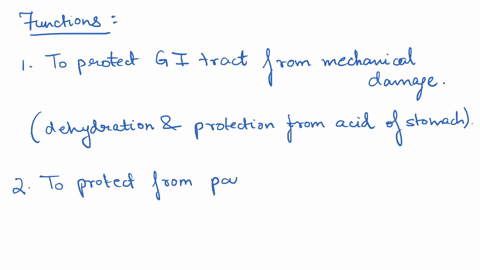 Functions :
1. To protect GI tract from mechanical
damage.
(dehydration & protection from acid of stomach).
2. To protect from pa